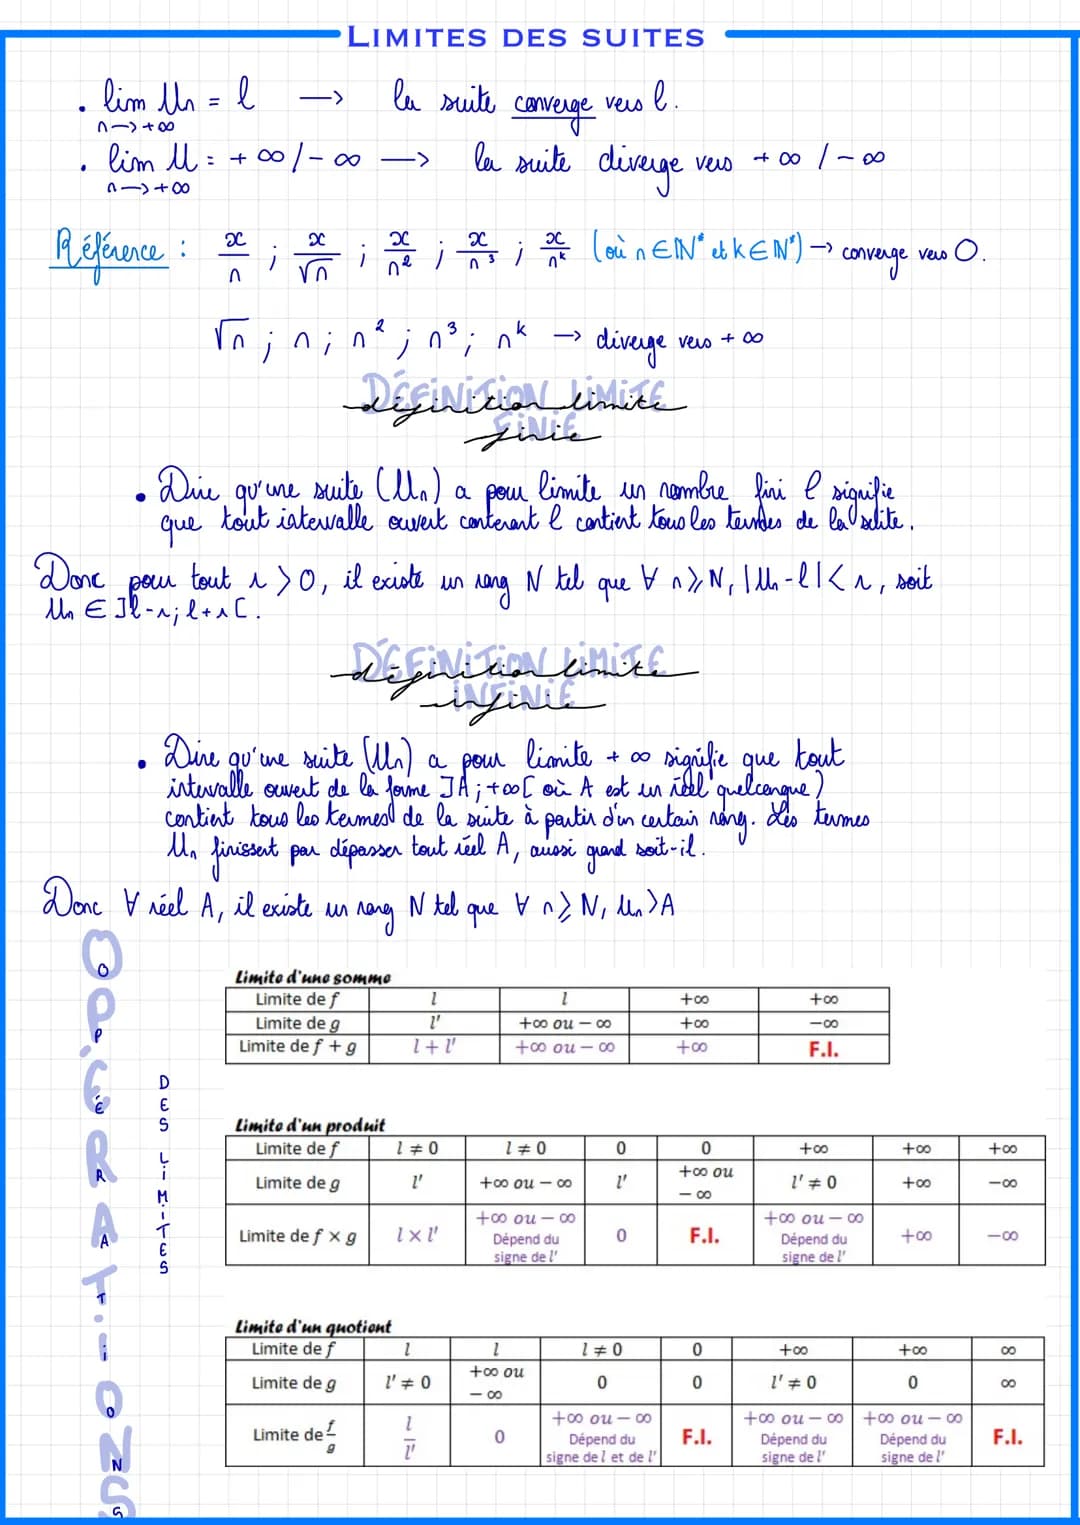 LIMITES DES SUITES
• lim Un = l → la suite converge vers l.
n→+∞
• lim U = +∞/-∞ → la suite diverge vers +∞/-∞
n→+∞
Référence : x/n ; x/√n ; x/n² ; x/n³ ; x/nᵏ (où n ∈ ℕ* et k ∈ ℕ*) → converge vers 0.
√n ; n ; n² ; n³ ; nᵏ → diverge vers +∞
DÉFINITION LIMITE
définition limite
FINIE
finie
• Dire qu'une suite (Un) a pour limite un nombre fini l signifie
que tout intervalle ouvert contenant l contient tous les termes de la suite.
Donc pour tout r > 0, il existe un rang N tel que ∀ n ⩾ N, |Un - l| < r, soit
Un ∈ ]l-r ; l+r[.
DÉFINITION LIMITE
définition limite
INFINIE
infinie
• Dire qu'une suite (Un) a pour limite +∞ signifie que tout
intervalle ouvert de la forme ]A ; +∞[ où A est un réel quelconque)
contient tous les termes de la suite à partir d'un certain rang. Les termes
Un finissent par dépasser tout réel A, aussi grand soit-il.
Donc ∀ réel A, il existe un rang N tel que ∀ n ⩾ N, Un > A
OPÉRATIONS
DES LIMITES
Limite d'une somme
Limite de f | l | l | +∞ | +∞
Limite de g | l' | +∞ ou − ∞ | +∞ | −∞
Limite de f + g | l + l' | +∞ ou − ∞ | +∞ | F.I.
Limite d'un produit
Limite de f | l ≠ 0 | l ≠ 0 | 0 | 0 | +∞ | +∞ | +∞
Limite de g | l' | +∞ ou − ∞ | l' | +∞ ou − ∞ | l' ≠ 0 | +∞ | −∞
Limite de f × g | l × l' | +∞ ou − ∞ Dépend du signe de l' | 0 | F.I. | +∞ ou − ∞ Dépend du signe de l' | +∞ | −∞
Limite d'un quotient
Limite de f | l | l | l ≠ 0 | 0 | +∞ | +∞ | ∞
Limite de g | l' ≠ 0 | +∞ ou − ∞ | 0 | 0 | l' ≠ 0 | 0 | ∞
Limite de f/g | l/l' | 0 | +∞ ou − ∞ Dépend du signe de l et de l' | F.I. | +∞ ou − ∞ Dépend du signe de l' | +∞ ou − ∞ Dépend du signe de l' | F.I.